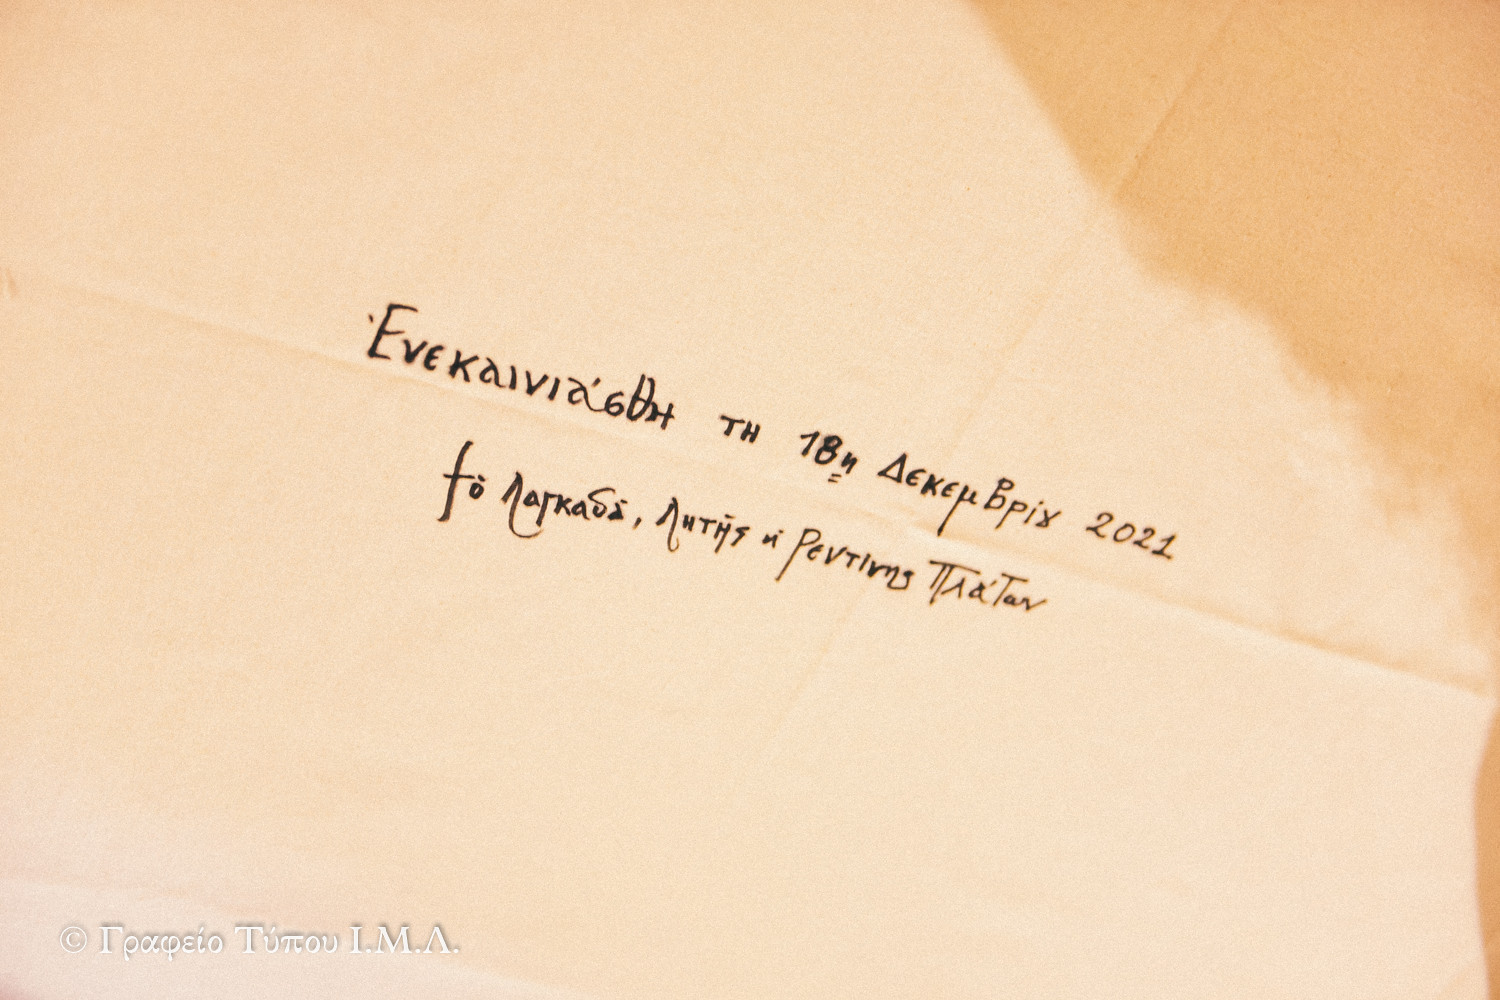 Ἐνεκαινιάσθη τη 18η Δεκεμβρίȣ 2021
†ὁ Λαγκαδᾶ, Λητῆς κ̀ Ρεντίνης Πλάτων
© Γραφείο Τύπου Ι.Μ.Λ.